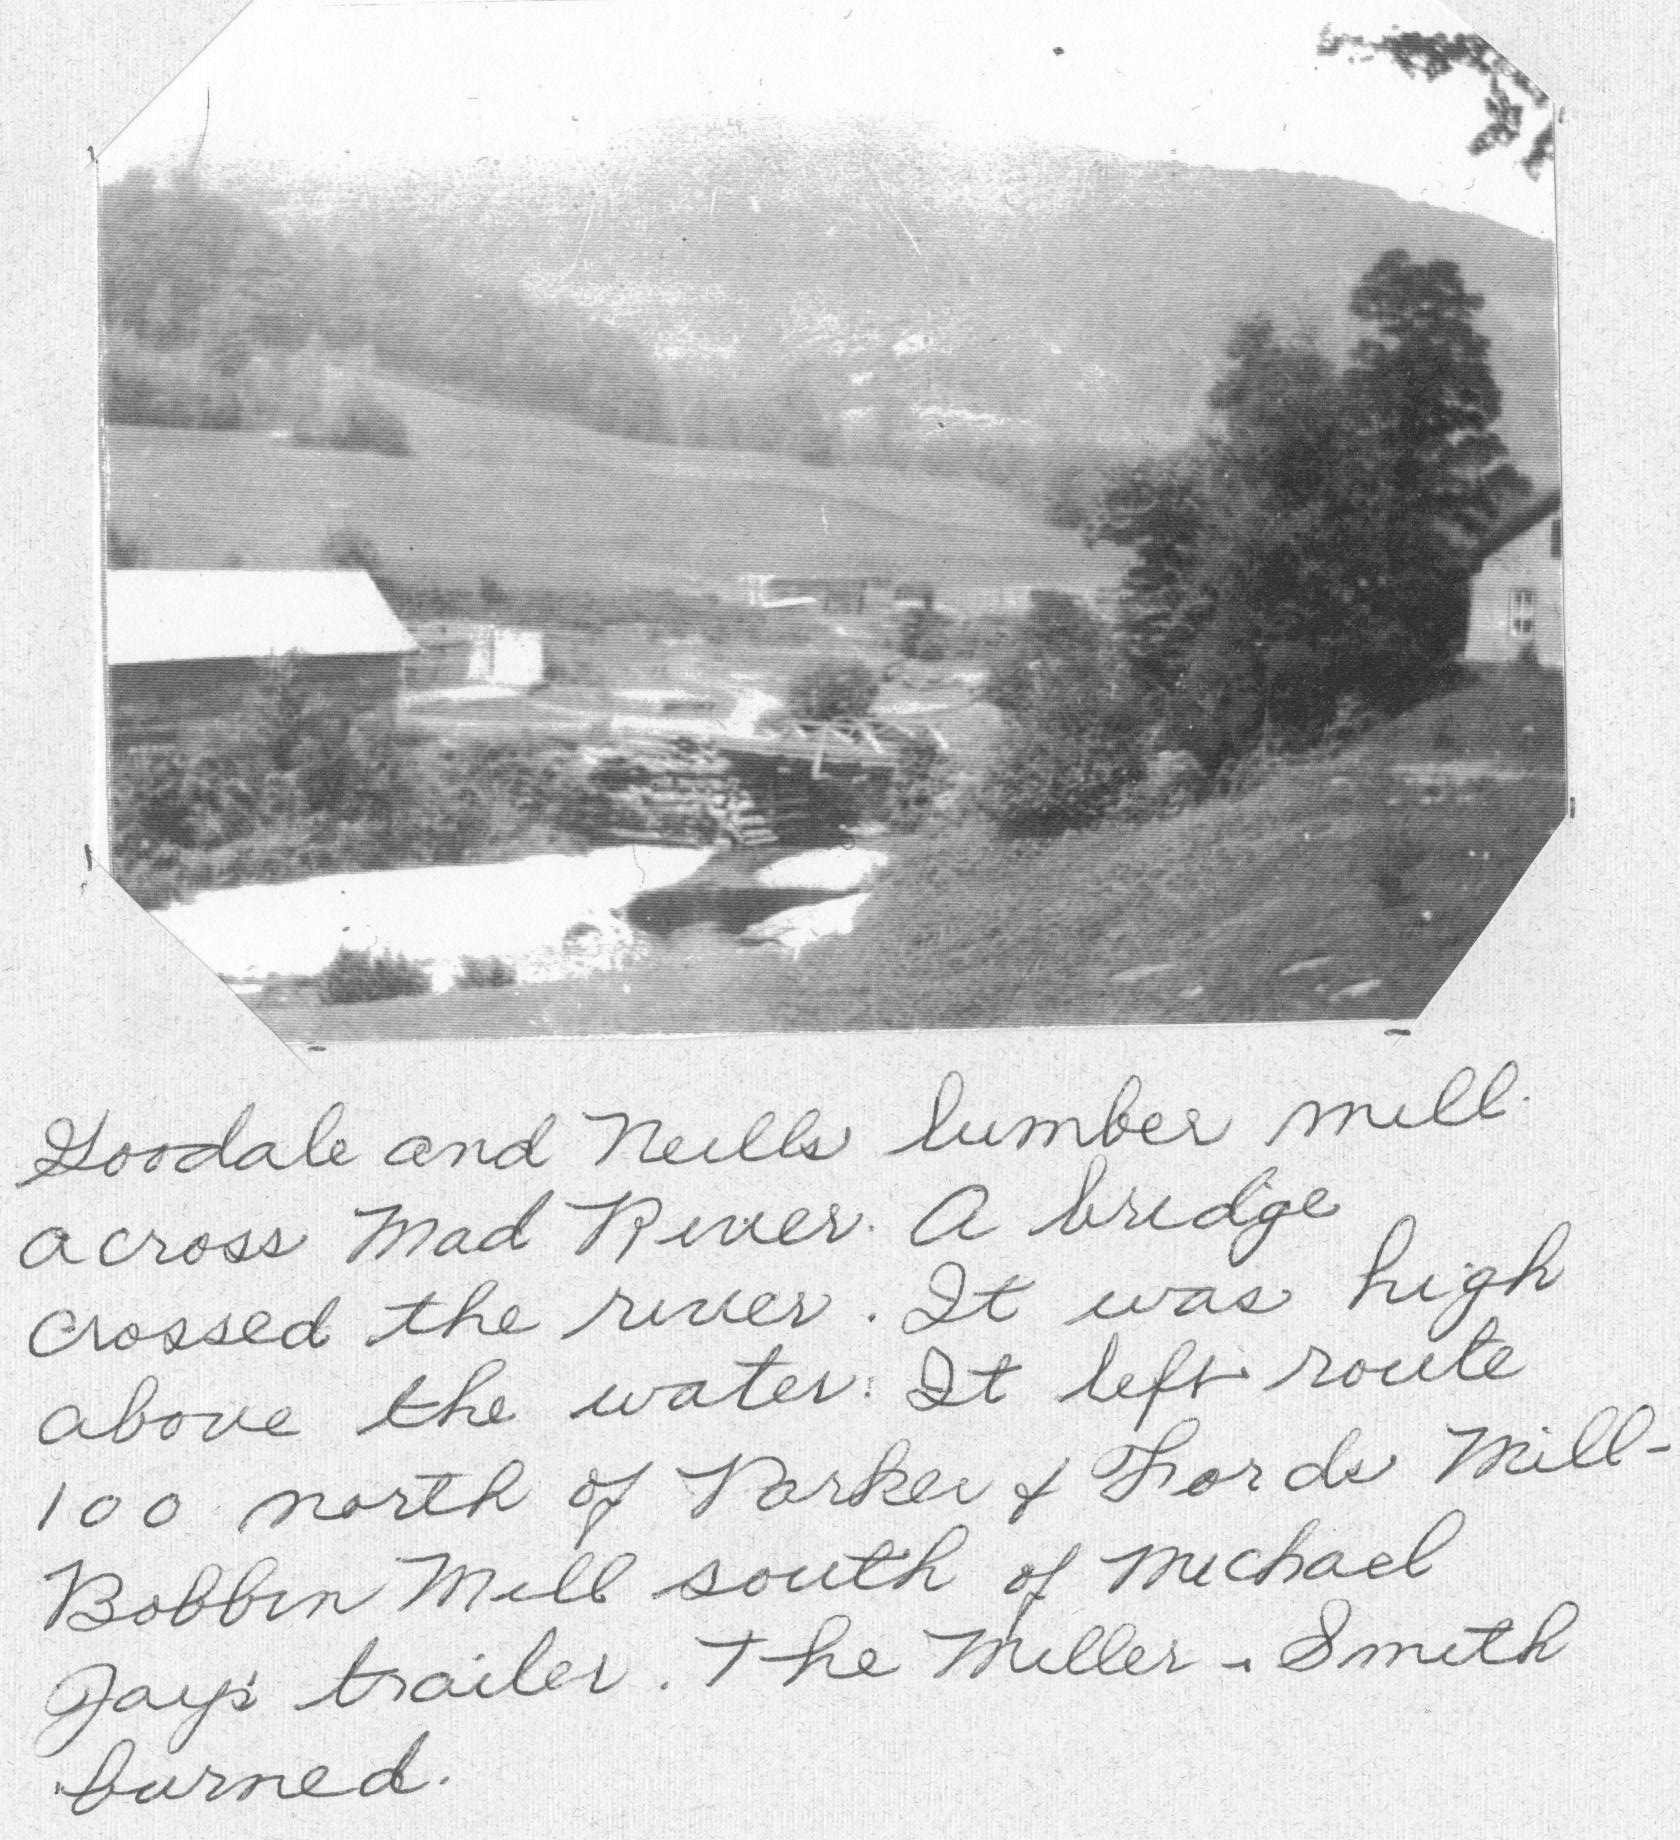 Goodale and Neills lumber mill
across Mad River. A bridge
crossed the river. It was high
above the water. It left route
100 north of Parker & Fords Mill-
Bobbin Mill south of Michael
Jay's trailer. The Miller - Smith
burned.